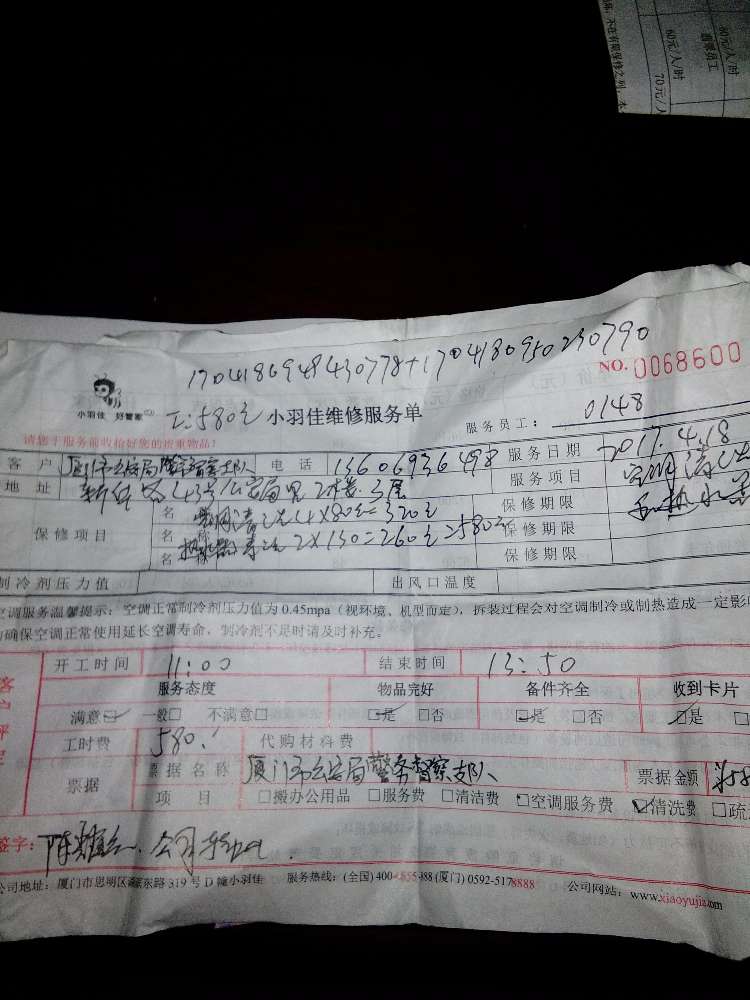 60元/人/时
70元/人
170418694843 0778+170418095 0230790
NO. 0068600
小羽佳 好管家
I:580元 小羽佳维修服务单
服务员工: 0148
请您于服务前收拾好您的贵重物品!
客户 厦门市公安局警务督察支队 电话 13606936498 服务日期 2017.4.18
地址 新华路43号公安局里2楼.3层 服务项目 空调清洗
和热水器
名称 空调清洗4X80元=320元 保修期限
保修项目 名称 热水器清洗2X130=260元=580元 保修期限
名称 保修期限
制冷剂压力值 出风口温度
空调服务温馨提示: 空调正常制冷剂压力值为 0.45mpa (视环境、机型而定), 拆装过程会对空调制冷或制热造成一定影
确保空调正常使用延长空调寿命, 制冷剂不足时请及时补充。
开工时间 11:00 结束时间 13:50
客户评定
服务态度 物品完好 备件齐全 收到卡片
满意☑ 一般□ 不满意□ ☑是 □否 ☑是 □否 ☑是 □
工时费 580. 代购材料费
票据 票据名称 厦门市公安局警务督察支队 票据金额 ¥58
项目 □搬办公用品 □服务费 □清洁费 □空调服务费 ☑清洗费 □疏
签字:
公司地址: 厦门市思明区 东路 319 号 D 幢小羽佳 服务热线: (全国) 400-855-988 (厦门) 0592-5178888 公司网站: www.xiaoyujia.com